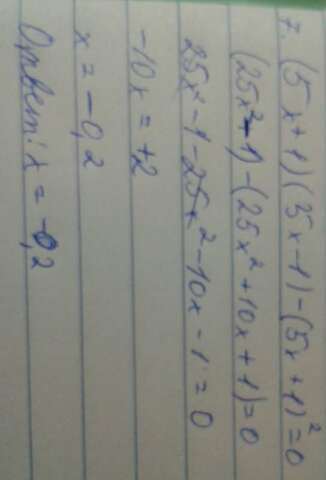 7. (5x+1)(5x-1)-(5x+1)²=0
(25x²-1)-(25x²+10x+1)=0
25x²-1-25x²-10x-1=0
-10x=+2
x=-0,2
Ответ: x=-0,2